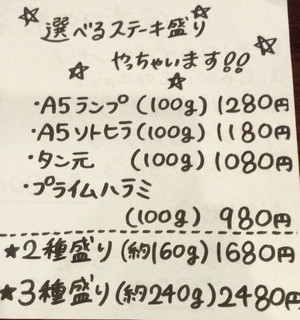 選べるステーキ盛り
やっちゃいます!!
・A5ランプ(100g)1280円
・A5ソトヒラ(100g)1180円
・タン元 (100g)1080円
・プライムハラミ
(100g) 980円
★2種盛り(約160g)1680円
★3種盛り(約240g)2480円